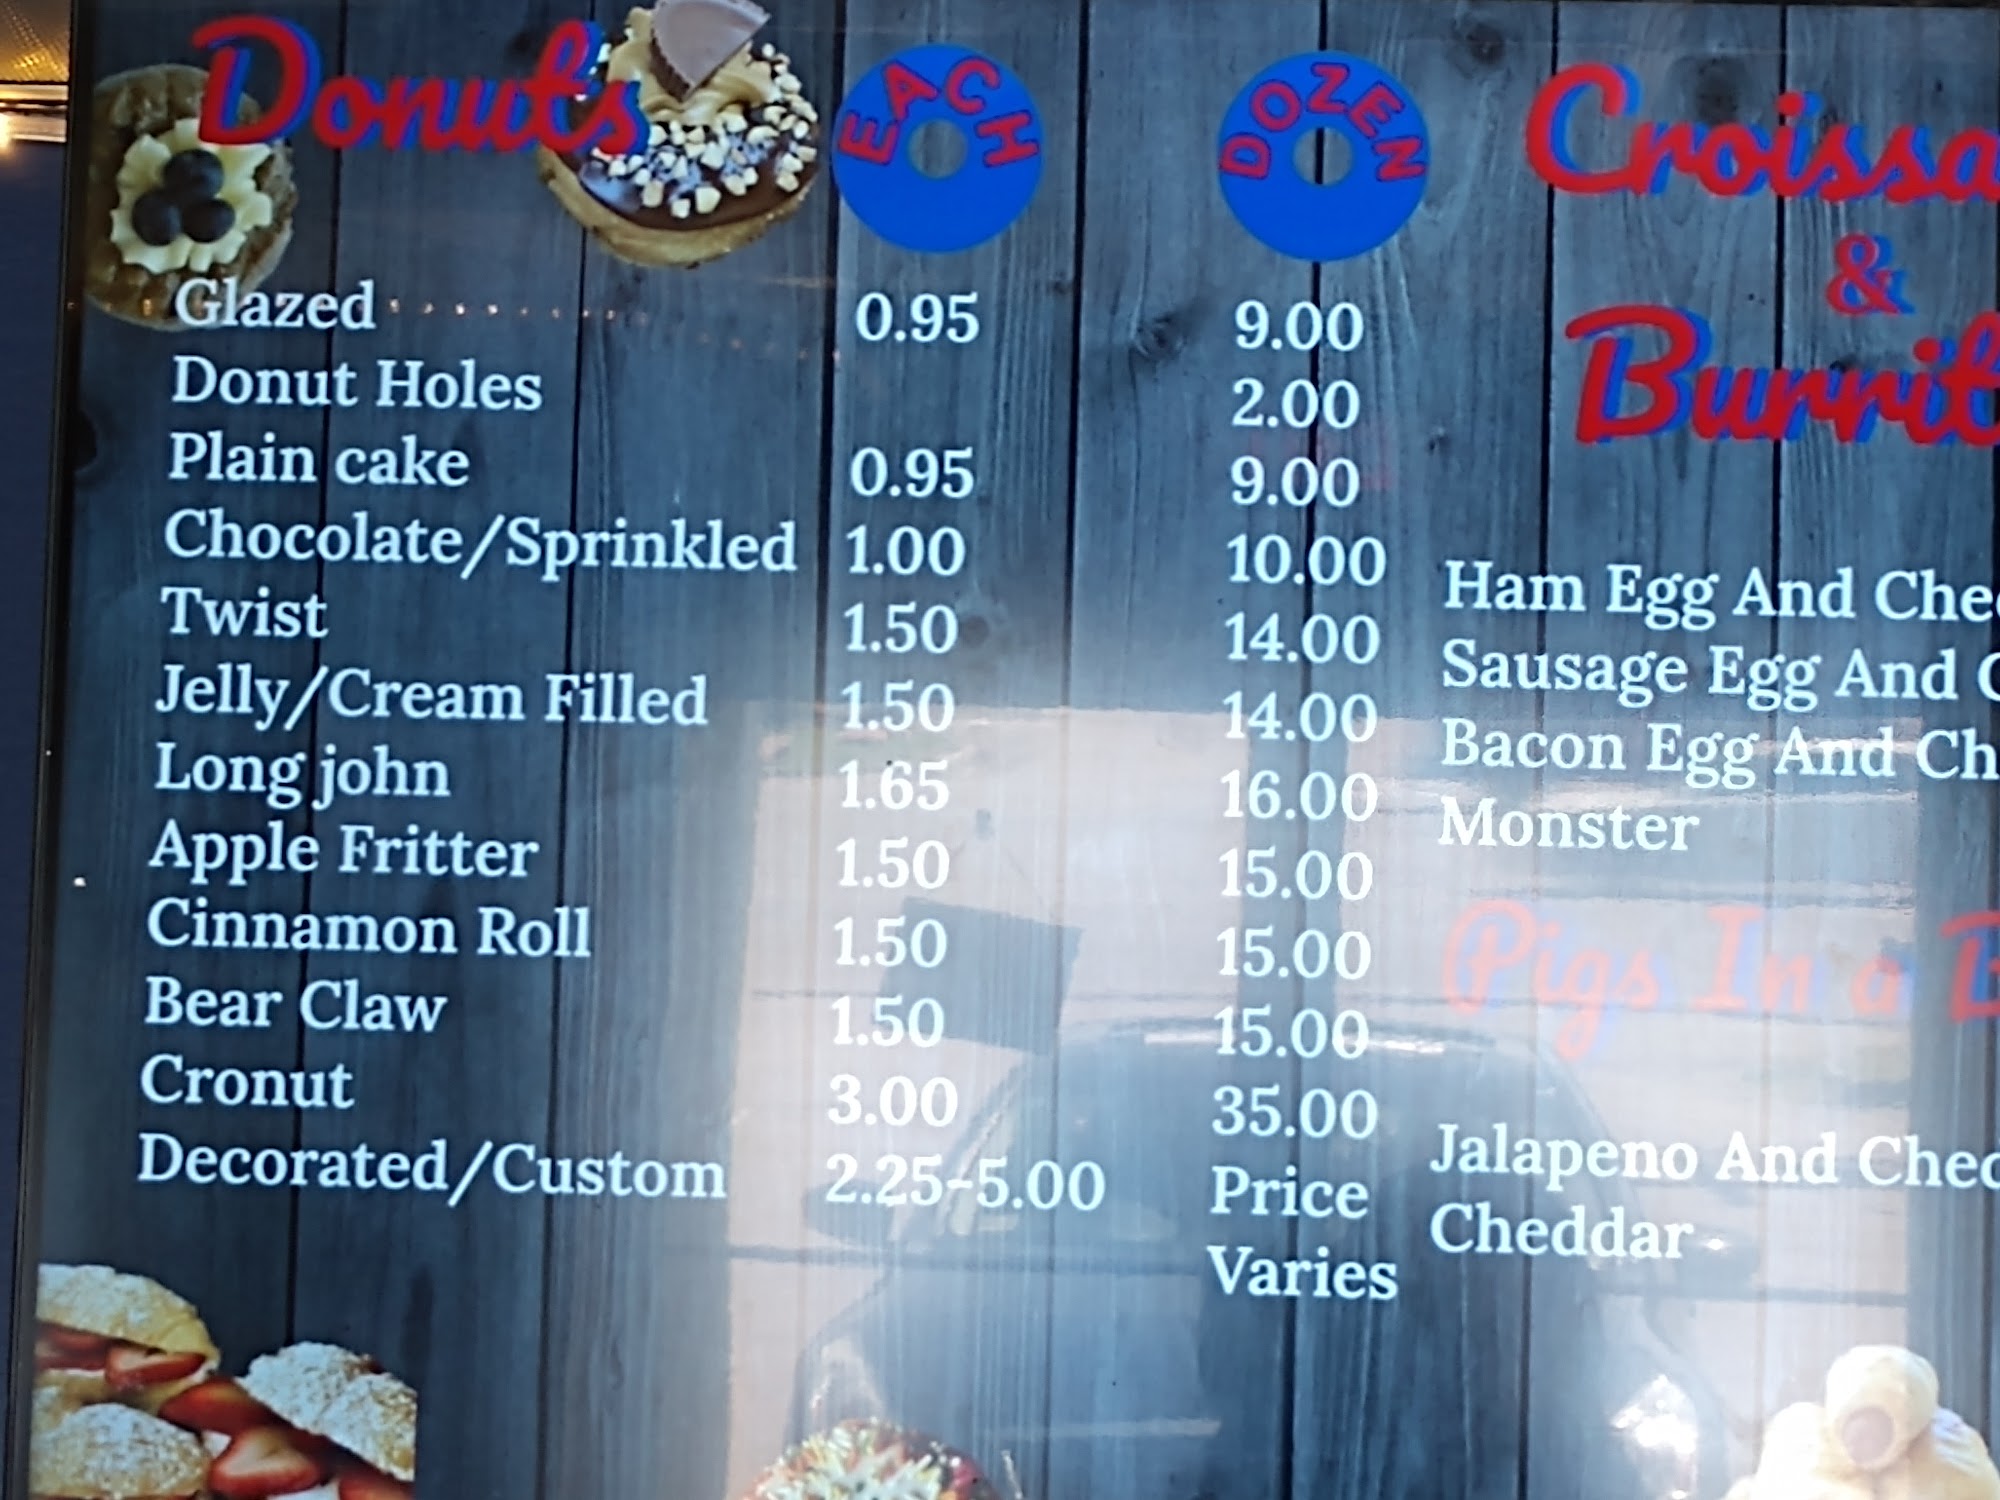 Donuts EACH DOZEN
Glazed 0.95 9.00
Donut Holes 2.00
Plain cake 0.95 9.00
Chocolate/Sprinkled 1.00 10.00
Twist 1.50 14.00
Jelly/Cream Filled 1.50 14.00
Long john 1.65 16.00
Apple Fritter 1.50 15.00
Cinnamon Roll 1.50 15.00
Bear Claw 1.50 15.00
Cronut 3.00 35.00
Decorated/Custom 2.25-5.00 Price
Varies
&
Ham Egg And
Sausage Egg And
Bacon Egg And
Monster
Pigs In a
Jalapeno And
Cheddar